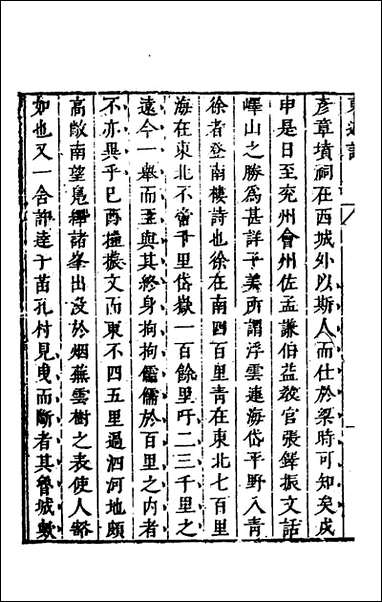 東遊記
彥章墳祠在西城外以斯人而仕於梁時可知矣戌
申是日至兖州會州佐孟謙伯益教官張鐸振文話
嶧山之勝爲甚詳子美所謂浮雲連海岱平野入青
徐者登南樓詩也徐在南四百里青在東北七百里
海在東北不啻千里岱嶽一百餘里吁二三千里之
遠今一舉而至與其終身拘拘儒儒於百里之內者
不亦異乎巳酉撞振文而東不四五里過泗河地頗
高敞南望鳧繹諸峯出没於烟蕪雲樹之表使人豁
如也又一舍許達于苗孔村見叟而斷者其魯城歟